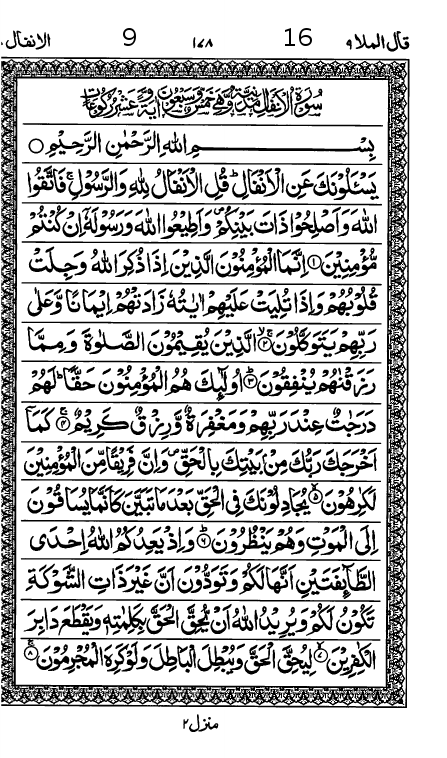 قال الملا ٩ 16 ١٧٨ 9 الانفال ٨
سُوْرَةُ الْاَنْفَالِ مَدَنِيَّةٌ وَّهِيَ خَمْسٌ وَّسَبْعُوْنَ اٰيَةً وَّعَشْرُ رُكُوْعَاتٍ
بِسْـــــــــــمِ اللهِ الرَّحْمٰنِ الرَّحِيْمِ ○
يَسْـَٔلُوْنَكَ عَنِ الْاَنْفَالِ ؕ قُلِ الْاَنْفَالُ لِلّٰهِ وَالرَّسُوْلِ ۚ فَاتَّقُوا
اللهَ وَاَصْلِحُوْا ذَاتَ بَيْنِكُمْ ۪ وَاَطِيْعُوا اللهَ وَرَسُوْلَهٗۤ اِنْ كُنْتُمْ
مُّؤْمِنِيْنَ ۝١ اِنَّمَا الْمُؤْمِنُوْنَ الَّذِيْنَ اِذَا ذُكِرَ اللهُ وَجِلَتْ
قُلُوْبُهُمْ وَاِذَا تُلِيَتْ عَلَيْهِمْ اٰيٰتُهٗ زَادَتْهُمْ اِيْمَانًا وَّعَلٰى
رَبِّهِمْ يَتَوَكَّلُوْنَ ۝٢ الَّذِيْنَ يُقِيْمُوْنَ الصَّلٰوةَ وَمِمَّا
رَزَقْنٰهُمْ يُنْفِقُوْنَ ۝٣ اُولٰٓئِكَ هُمُ الْمُؤْمِنُوْنَ حَقًّا ؕ لَهُمْ
دَرَجٰتٌ عِنْدَ رَبِّهِمْ وَمَغْفِرَةٌ وَّرِزْقٌ كَرِيْمٌ ۝٤ كَمَاۤ
اَخْرَجَكَ رَبُّكَ مِنْۢ بَيْتِكَ بِالْحَقِّ ۪ وَاِنَّ فَرِيْقًا مِّنَ الْمُؤْمِنِيْنَ
لَكٰرِهُوْنَ ۝٥ يُجَادِلُوْنَكَ فِى الْحَقِّ بَعْدَ مَا تَبَيَّنَ كَاَنَّمَا يُسَاقُوْنَ
اِلَى الْمَوْتِ وَهُمْ يَنْظُرُوْنَ ۝٦ وَاِذْ يَعِدُكُمُ اللهُ اِحْدَى
الطَّآئِفَتَيْنِ اَنَّهَا لَكُمْ وَتَوَدُّوْنَ اَنَّ غَيْرَ ذَاتِ الشَّوْكَةِ
تَكُوْنُ لَكُمْ وَيُرِيْدُ اللهُ اَنْ يُّحِقَّ الْحَقَّ بِكَلِمٰتِهٖ وَيَقْطَعَ دَابِرَ
الْكٰفِرِيْنَ ۝٧ لِيُحِقَّ الْحَقَّ وَيُبْطِلَ الْبَاطِلَ وَلَوْ كَرِهَ الْمُجْرِمُوْنَ ۝٨
منزل ٢